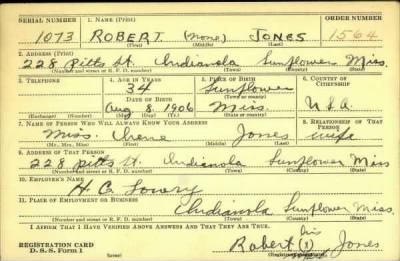 SERIAL NUMBER 1. NAME (Print) ORDER NUMBER
1073 ROBERT (None) JONES 1564
(First) (Middle) (Last)
2. ADDRESS (Print)
228 Pitts St. Indianola Sunflower Miss.
(Number and street or R. F. D. number) (Town) (County) (State)
3. TELEPHONE 4. AGE IN YEARS 5. PLACE OF BIRTH 6. COUNTRY OF CITIZENSHIP
34 Sunflower
DATE OF BIRTH (Town or county)
Aug 8, 1906 Miss. U.S.A.
(Exchange) (Number) (Mo.) (Day) (Yr.) (State or country)
7. NAME OF PERSON WHO WILL ALWAYS KNOW YOUR ADDRESS 8. RELATIONSHIP OF THAT PERSON
Miss. Irene Jones wife
(Mr., Mrs., Miss) (First) (Middle) (Last)
9. ADDRESS OF THAT PERSON
228 Pitts St. Indianola Sunflower Miss
(Number and street or R. F. D. number) (Town) (County) (State)
10. EMPLOYER'S NAME
H. C. Lowery
11. PLACE OF EMPLOYMENT OR BUSINESS
Indianola Sunflower Miss.
(Number and street or R. F. D. number) (Town) (County) (State)
I AFFIRM THAT I HAVE VERIFIED ABOVE ANSWERS AND THAT THEY ARE TRUE.
REGISTRATION CARD
D. S. S. Form 1
his
Robert (x) Jones